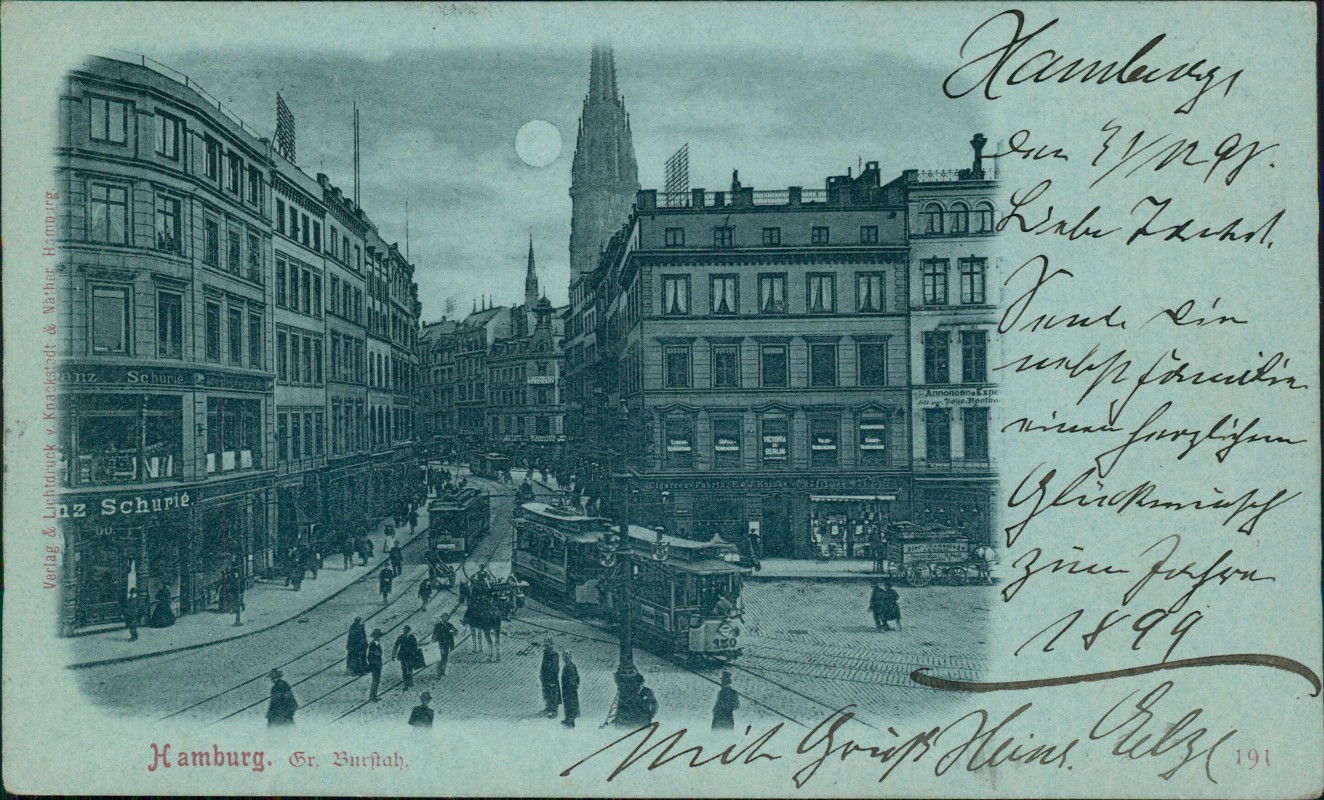 Hamburg,
den 31/12 98.
Liebe
Sende Dir
nebst Familie
einen herzlichen
Glückwunsch
zum Jahre
1899
Mit Gruß Heinr.
191
Hamburg. Gr. Burstah.
Verlag & Lichtdruck v Knackstedt & Näther, Hamburg
nz Schurié.
nz Schurié
Annoncen-Expe
VICTORIA
ZU
BERLIN
450